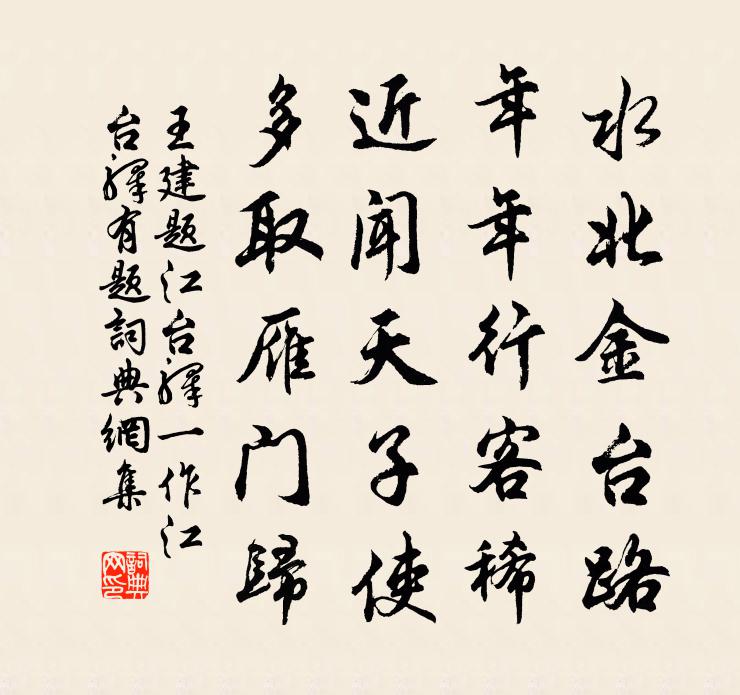 水北金台路
年年行客稀
近闻天子使
多取雁门歸
王建题江台驛一作江
台驛有题詞典網集
詞典
网印